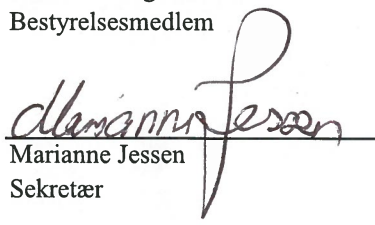 Bestyrelsesmedlem
Marianne Jessen
Marianne Jessen
Sekretær